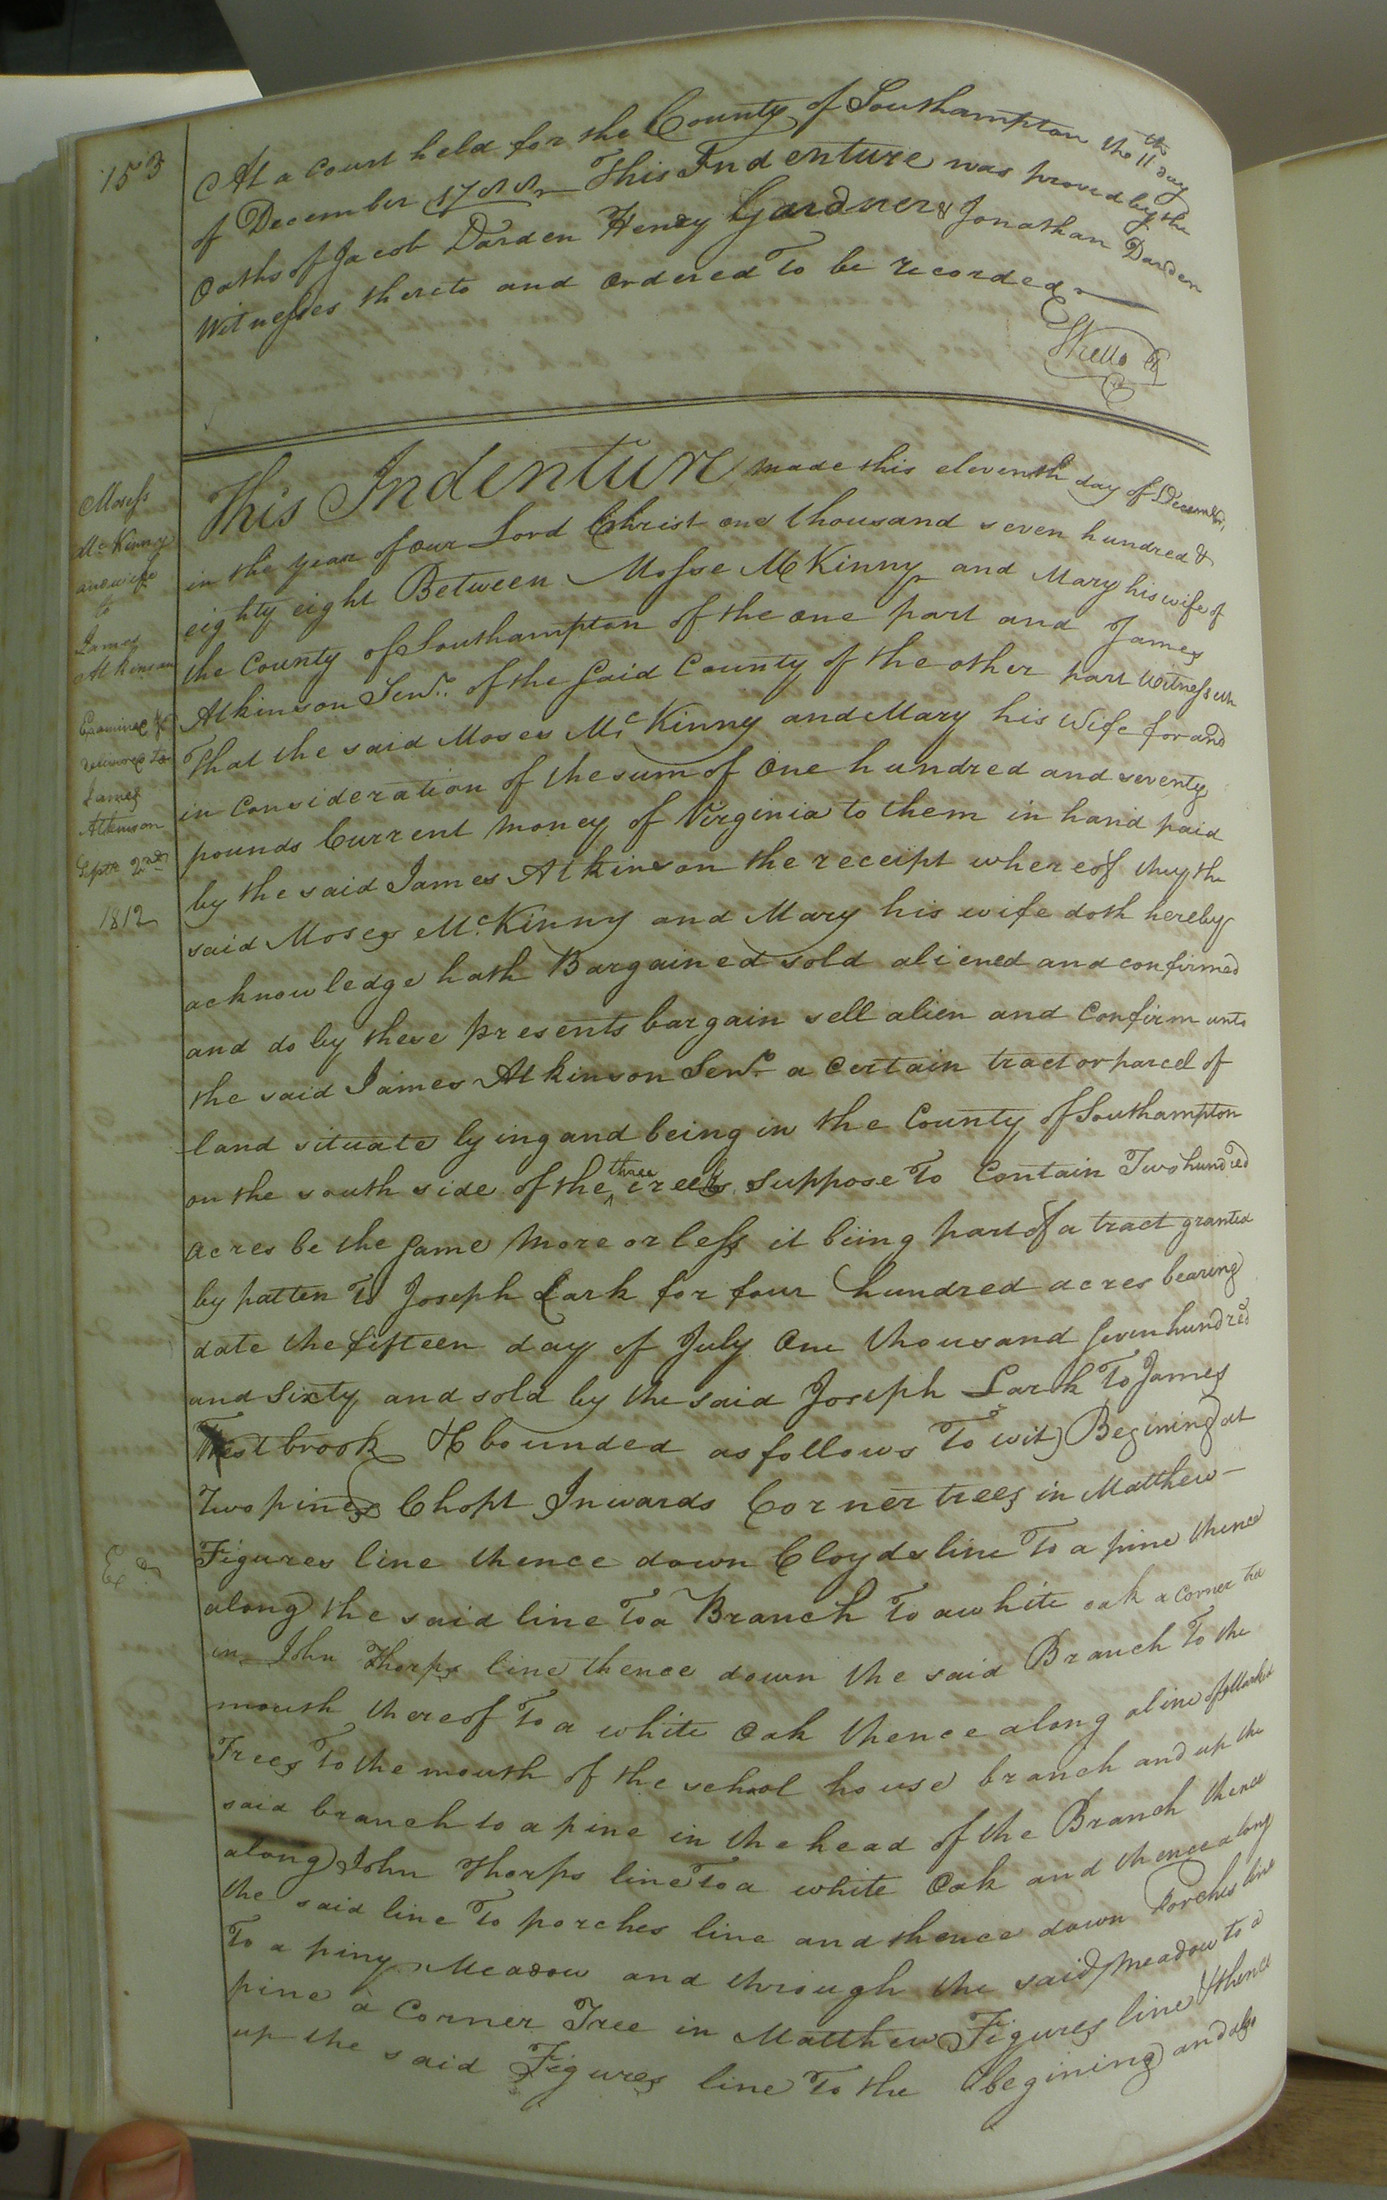 153
At a Court held for the County of Southampton the 11th day
of December 1788 This Indenture was proved by the
Oaths of Jacob Darden Henry Gardner & Jonathan Darden
Witnesses thereto and Ordered To be recorded
Moses
McKinny
and wife
to
James
Atkinson
Examined &
delivered to
James
Atkinson
Septr 2nd
1812
This Indenture made this eleventh day of December,
in the year of our Lord Christ one thousand seven hundred &
eighty eight Between Mosse McKinny and Mary his wife of
the County of Southampton of the one part and James
Atkinson Senr. of the said County of the other part Witnesseth
That the said Moses Mc Kinny and Mary his Wife for and
in Consideration of the sum of One hundred and seventy
pounds Current money of Virginia to them in hand paid
by the said James Atkinson the receipt whereof they the
said Moses Mc Kinny and Mary his wife doth hereby
acknowledge hath Bargained sold aliened and confirmed
and do by these presents bargain sell alien and Confirm unto
the said James Atkinson Senr. a Certain tract or parcel of
land situate lying and being in the County of Southampton
on the south side of the three creeks suppose To Contain Two hundred
acres be the same more or less it biing part of a tract granted
by patten To Joseph Lark for four hundred acres bearing
date the fifteen day of July One thousand seven hundred
and Sixty and sold by the said Joseph Lark To James
Westbrook & bounded as follows To wit) Begining at
Two pines Chopt Inwards Corner trees in Matthew
Figures line thence down Cloyds line To a pine thence
along the said line To a Branch To a white oak a Corner tree
in John Thorps line thence down the said Branch To the
mouth thereof To a white Oak thence along a line of Marked
Trees To the mouth of the school house branch and up the
said branch to a pine in the head of the Branch thence
along John Thorps line To a white Oak and thence along
the said line To porches line and thence down Porches line
To a piny Meadow and through the said meadow to a
pine a Corner Tree in Matthew Figures line & thence
up the said Figures line To the begining and also